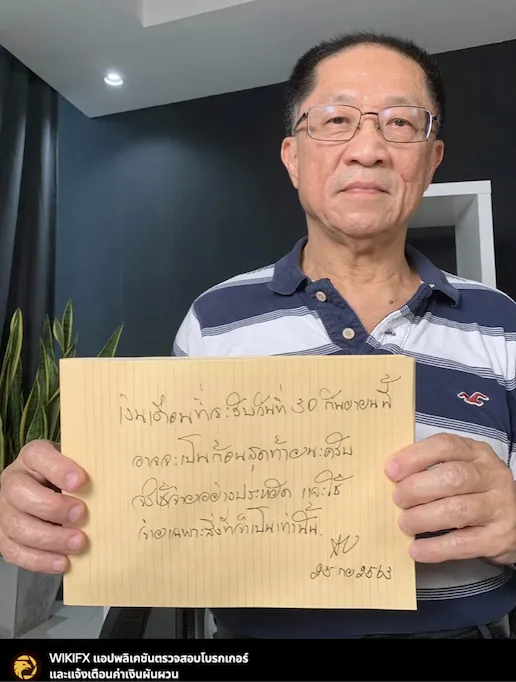 เงินเดือนที่จะรับวันที่ 30 กันยายนนี้
อาจจะเป็นก้อนสุดท้ายนะครับ
จงใช้จ่ายอย่างประหยัด และใช้
จ่ายเฉพาะสิ่งที่จำเป็นเท่านั้น.
25 กย 2563
WIKIFX แอปพลิเคชันตรวจสอบโบรกเกอร์
และแจ้งเตือนค่าเงินผันผวน